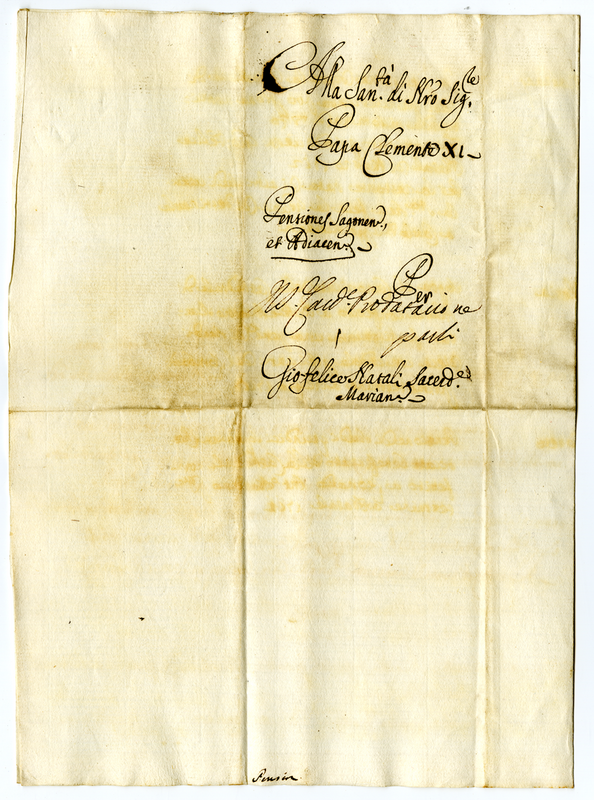 Alla San.tà di Nro Sig.re
Papa Clemente XI
Pensiones Sagonen.,
et Adiacen.
Per
M.r Card.l Prodatario ne
parli
Gio felice Natali Sacerd.e
Marian.
Pension